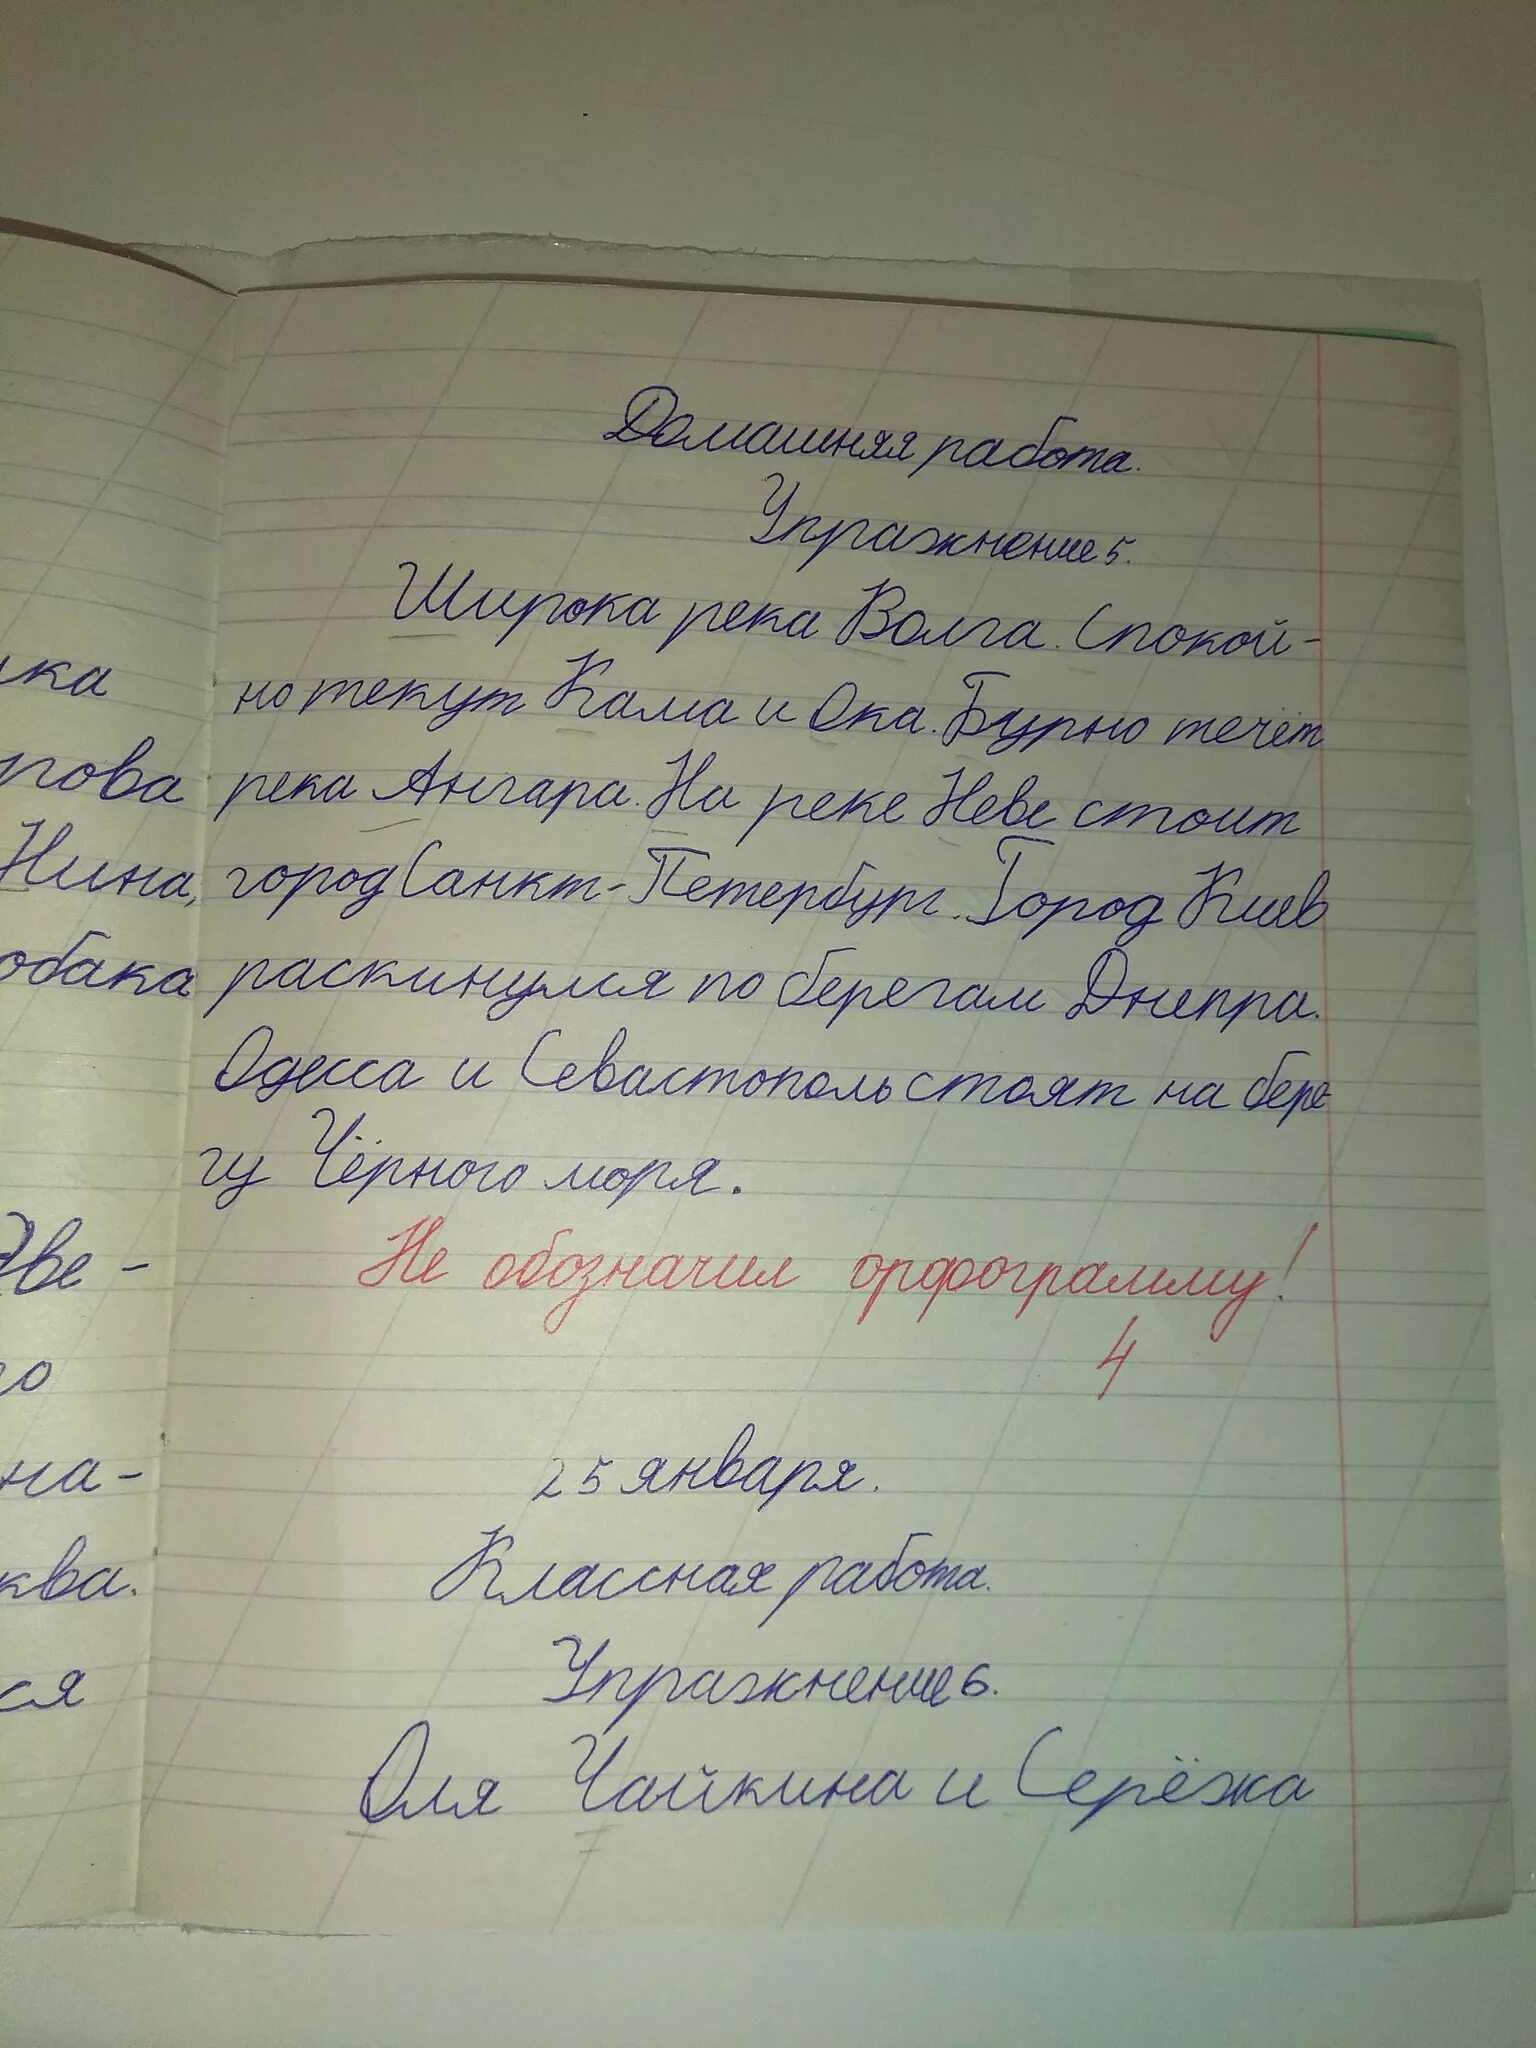 Домашняя работа.
Упражнение 5.
Широка река Волга. Спокой-
но текут Кама и Ока. Бурно течёт
река Ангара. На реке Неве стоит
город Санкт-Петербург. Город Киев
раскинулся по берегам Днепра.
Одесса и Севастополь стоят на бере
гу Чёрного моря.
Не обозначил орфограмму!
4
25 января.
Классная работа.
Упражнение 6.
Оля Чайкина и Серёжа
Нина,